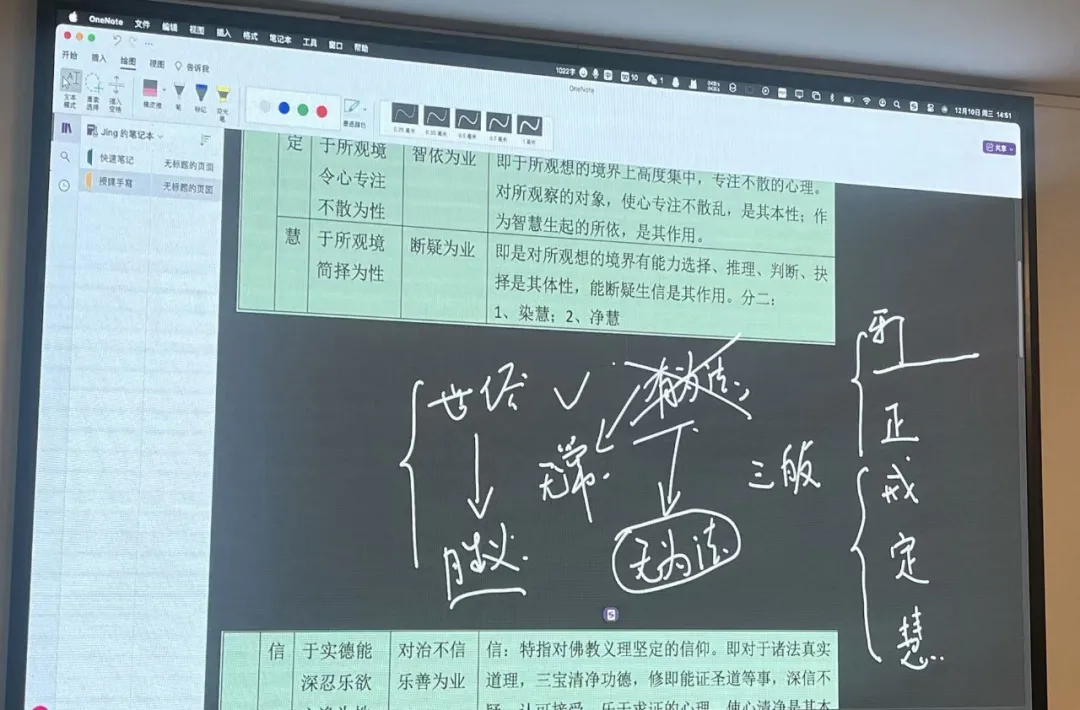 OneNote 文件 编辑 视图 插入 格式 笔记本 工具 窗口 帮助
1022字
12月10日 周三 14:51
OneNote
开始 插入 绘图 视图 告诉我
共享
文本模式 套索选择 插入空格 橡皮擦 笔 标记 荧光笔 墨迹颜色
0.25 毫米 0.35 毫米 0.5 毫米 0.7 毫米 1 毫米
Jing 的笔记本
快速笔记 无标题的页面
授课手写 无标题的页面
定 于所观境令心专注不散为性 智依为业 即于所观想的境界上高度集中，专注不散的心理。
对所观察的对象，使心专注不散乱，是其本性；作
为智慧生起的所依，是其作用。
慧 于所观境简择为性 断疑为业 即是对所观想的境界有能力选择、推理、判断、抉
择是其体性，能断疑生信是其作用。分二：
1、染慧；2、净慧
世俗 有为法
无常 三般
胜义 无为法
邪
正
戒
定
慧
信 于实德能深忍乐欲 对治不信乐善为业 信：特指对佛教义理坚定的信仰。即对于诸法真实
道理，三宝清净功德，修即能证圣道等事，深信不
疑，认可接受，乐于求证的心理，使心清净是其本